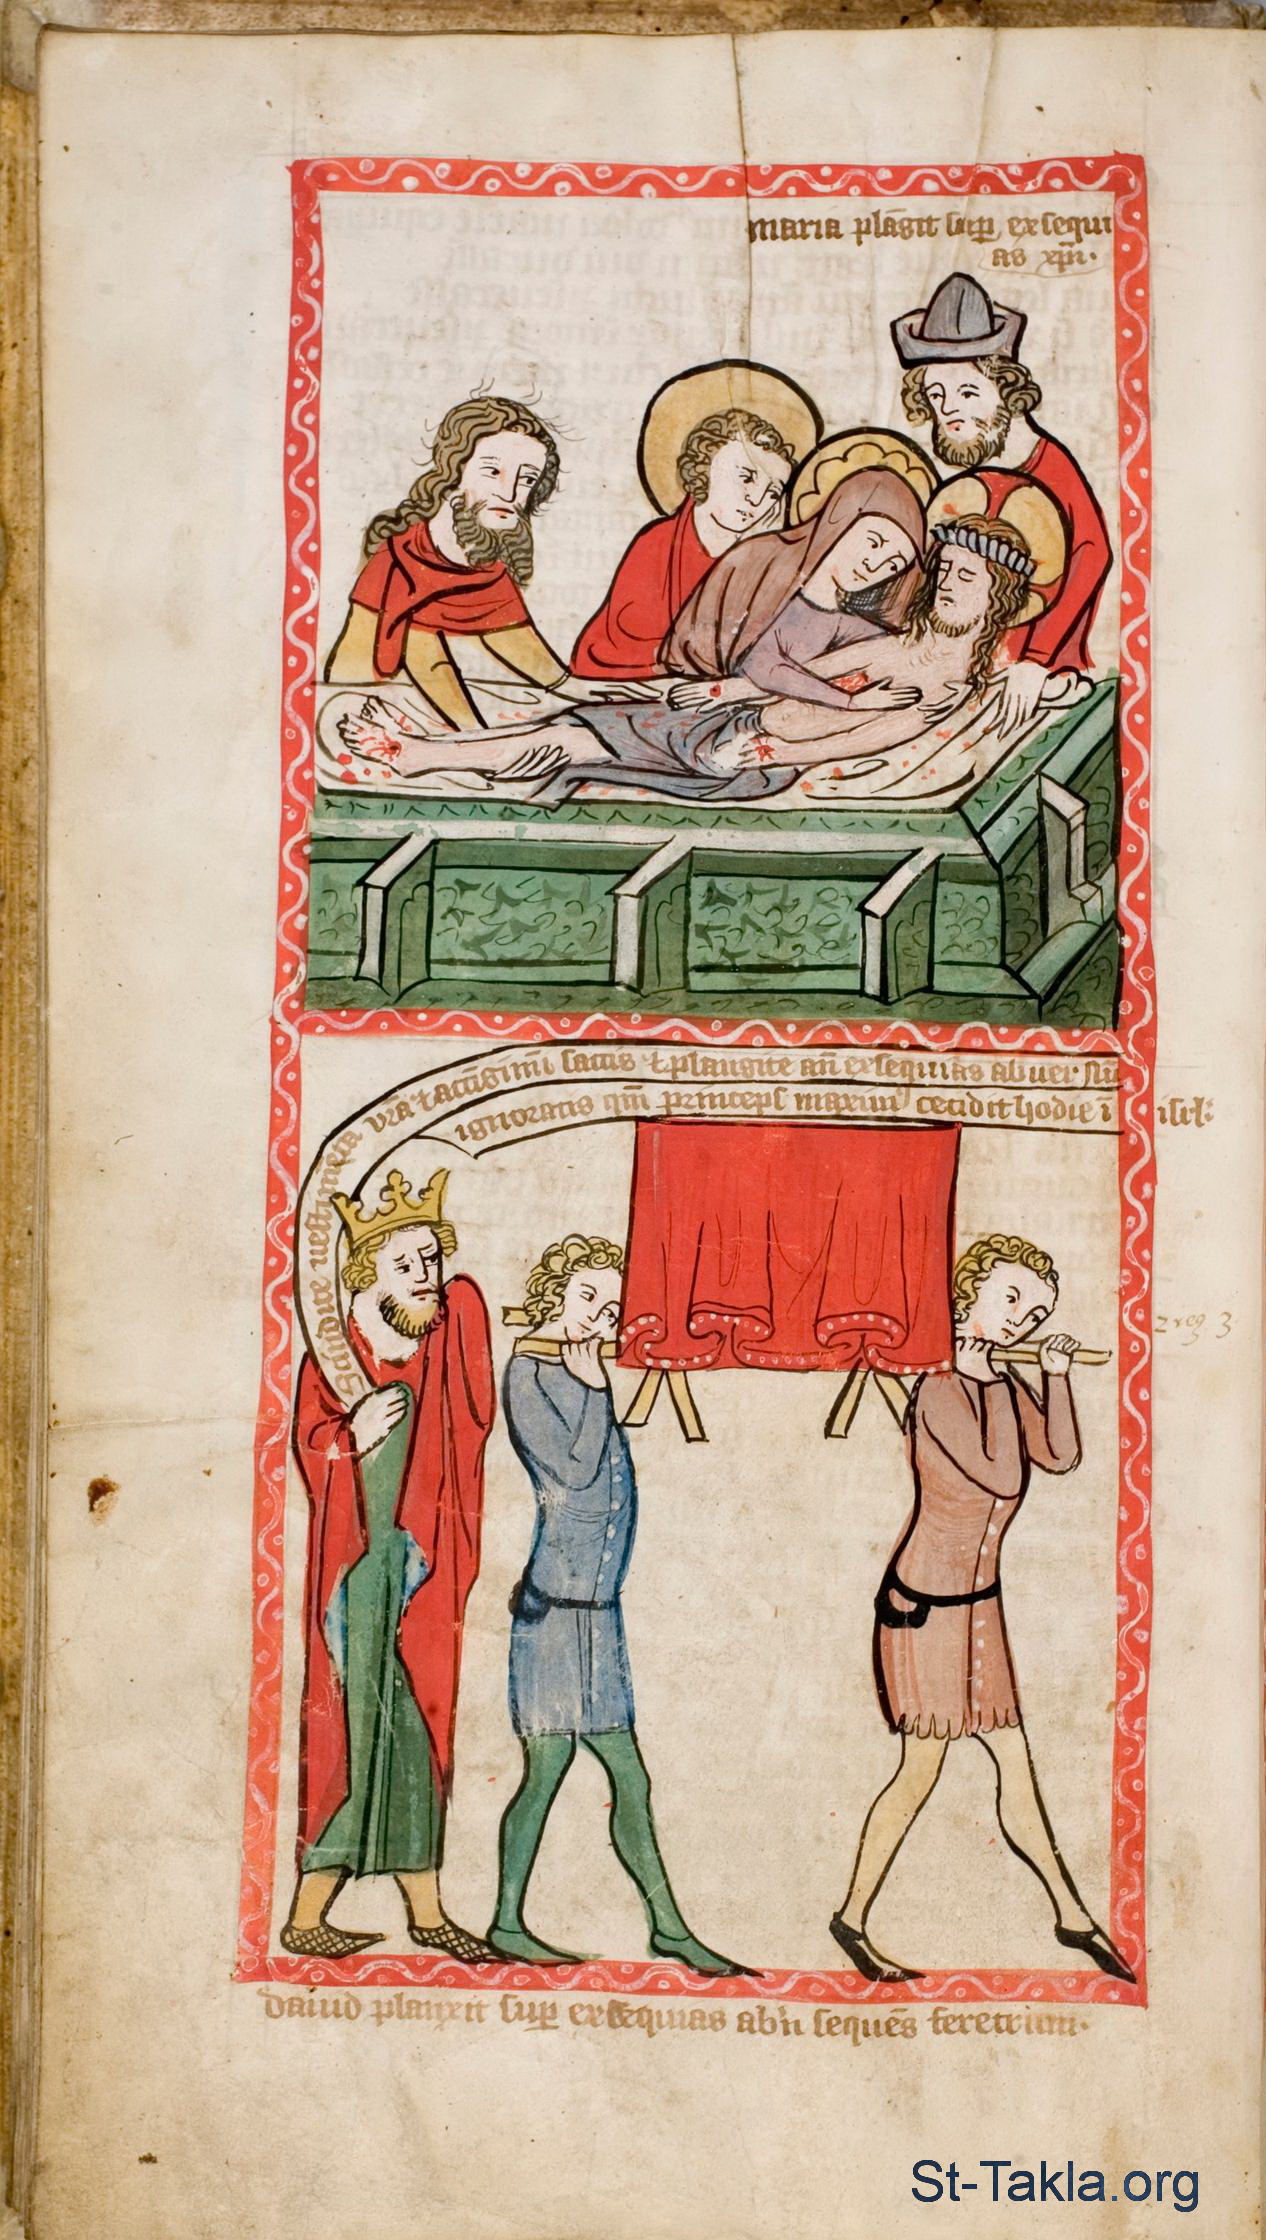 maria plāgit sup exsequi
as xpī.
Scindite vestimēta vrā ⁊ accīgimī saccis ⁊ plangite an̄ exsequias abner Nū
ignoratis qm̄ princeps maximus cecidit hodie ī isrl:
2 reg 3
dauid planxit sup exsequias abn̄ sequēs feretrum.
St-Takla.org